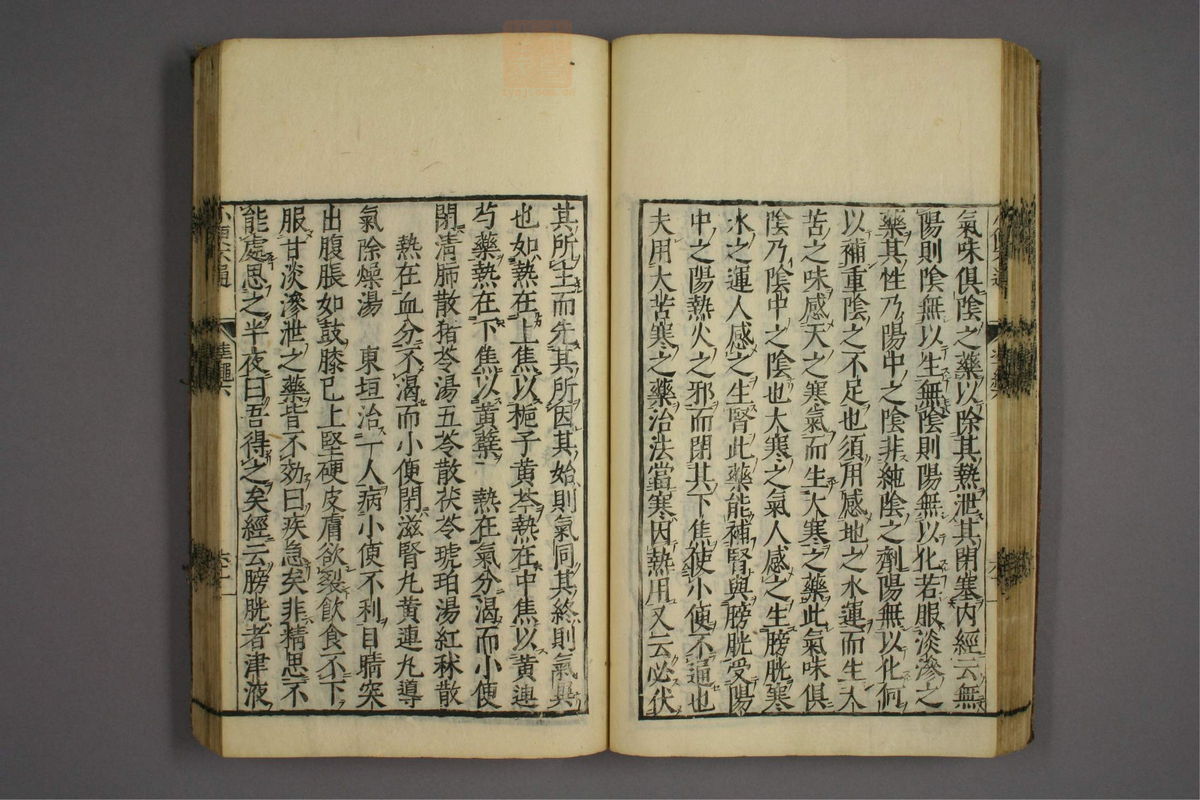 氣味俱陰之藥以除其熱泄其閉塞内經云無
陽則陰無以生無陰則陽無以化若服淡滲之
藥其性乃陽中之陰非純陰之劑陽無以化何
以補重陰之不足也須用感地之水運而生大
苦之味感天之寒氣而生大寒之藥此氣味俱
陰乃陰中之陰也大寒之氣人感之生膀胱寒
水之運人感之生腎此藥能補腎與膀胱受陽
中之陽熱火之邪而閉其下焦使小便不通也
夫用大苦寒之藥治法當寒因熱用又云必伏
其所主而先其所因其始則氣同其終則氣異
也如熱在上焦以梔子黃芩熱在中焦以黃連
芍藥熱在下焦以黃蘗 熱在氣分渴而小便
閉清肺散猪苓湯五苓散茯苓琥珀湯紅秫散
熱在血分不渴而小便閉滋腎丸黃連丸導
氣除燥湯 東垣治一人病小便不利目睛突
出腹脹如鼓膝已上堅硬皮膚欲裂飲食不下
服甘淡滲泄之藥皆不効曰疾急矣非精思不
能處思之半夜曰吾得之矣經云膀胱者津液